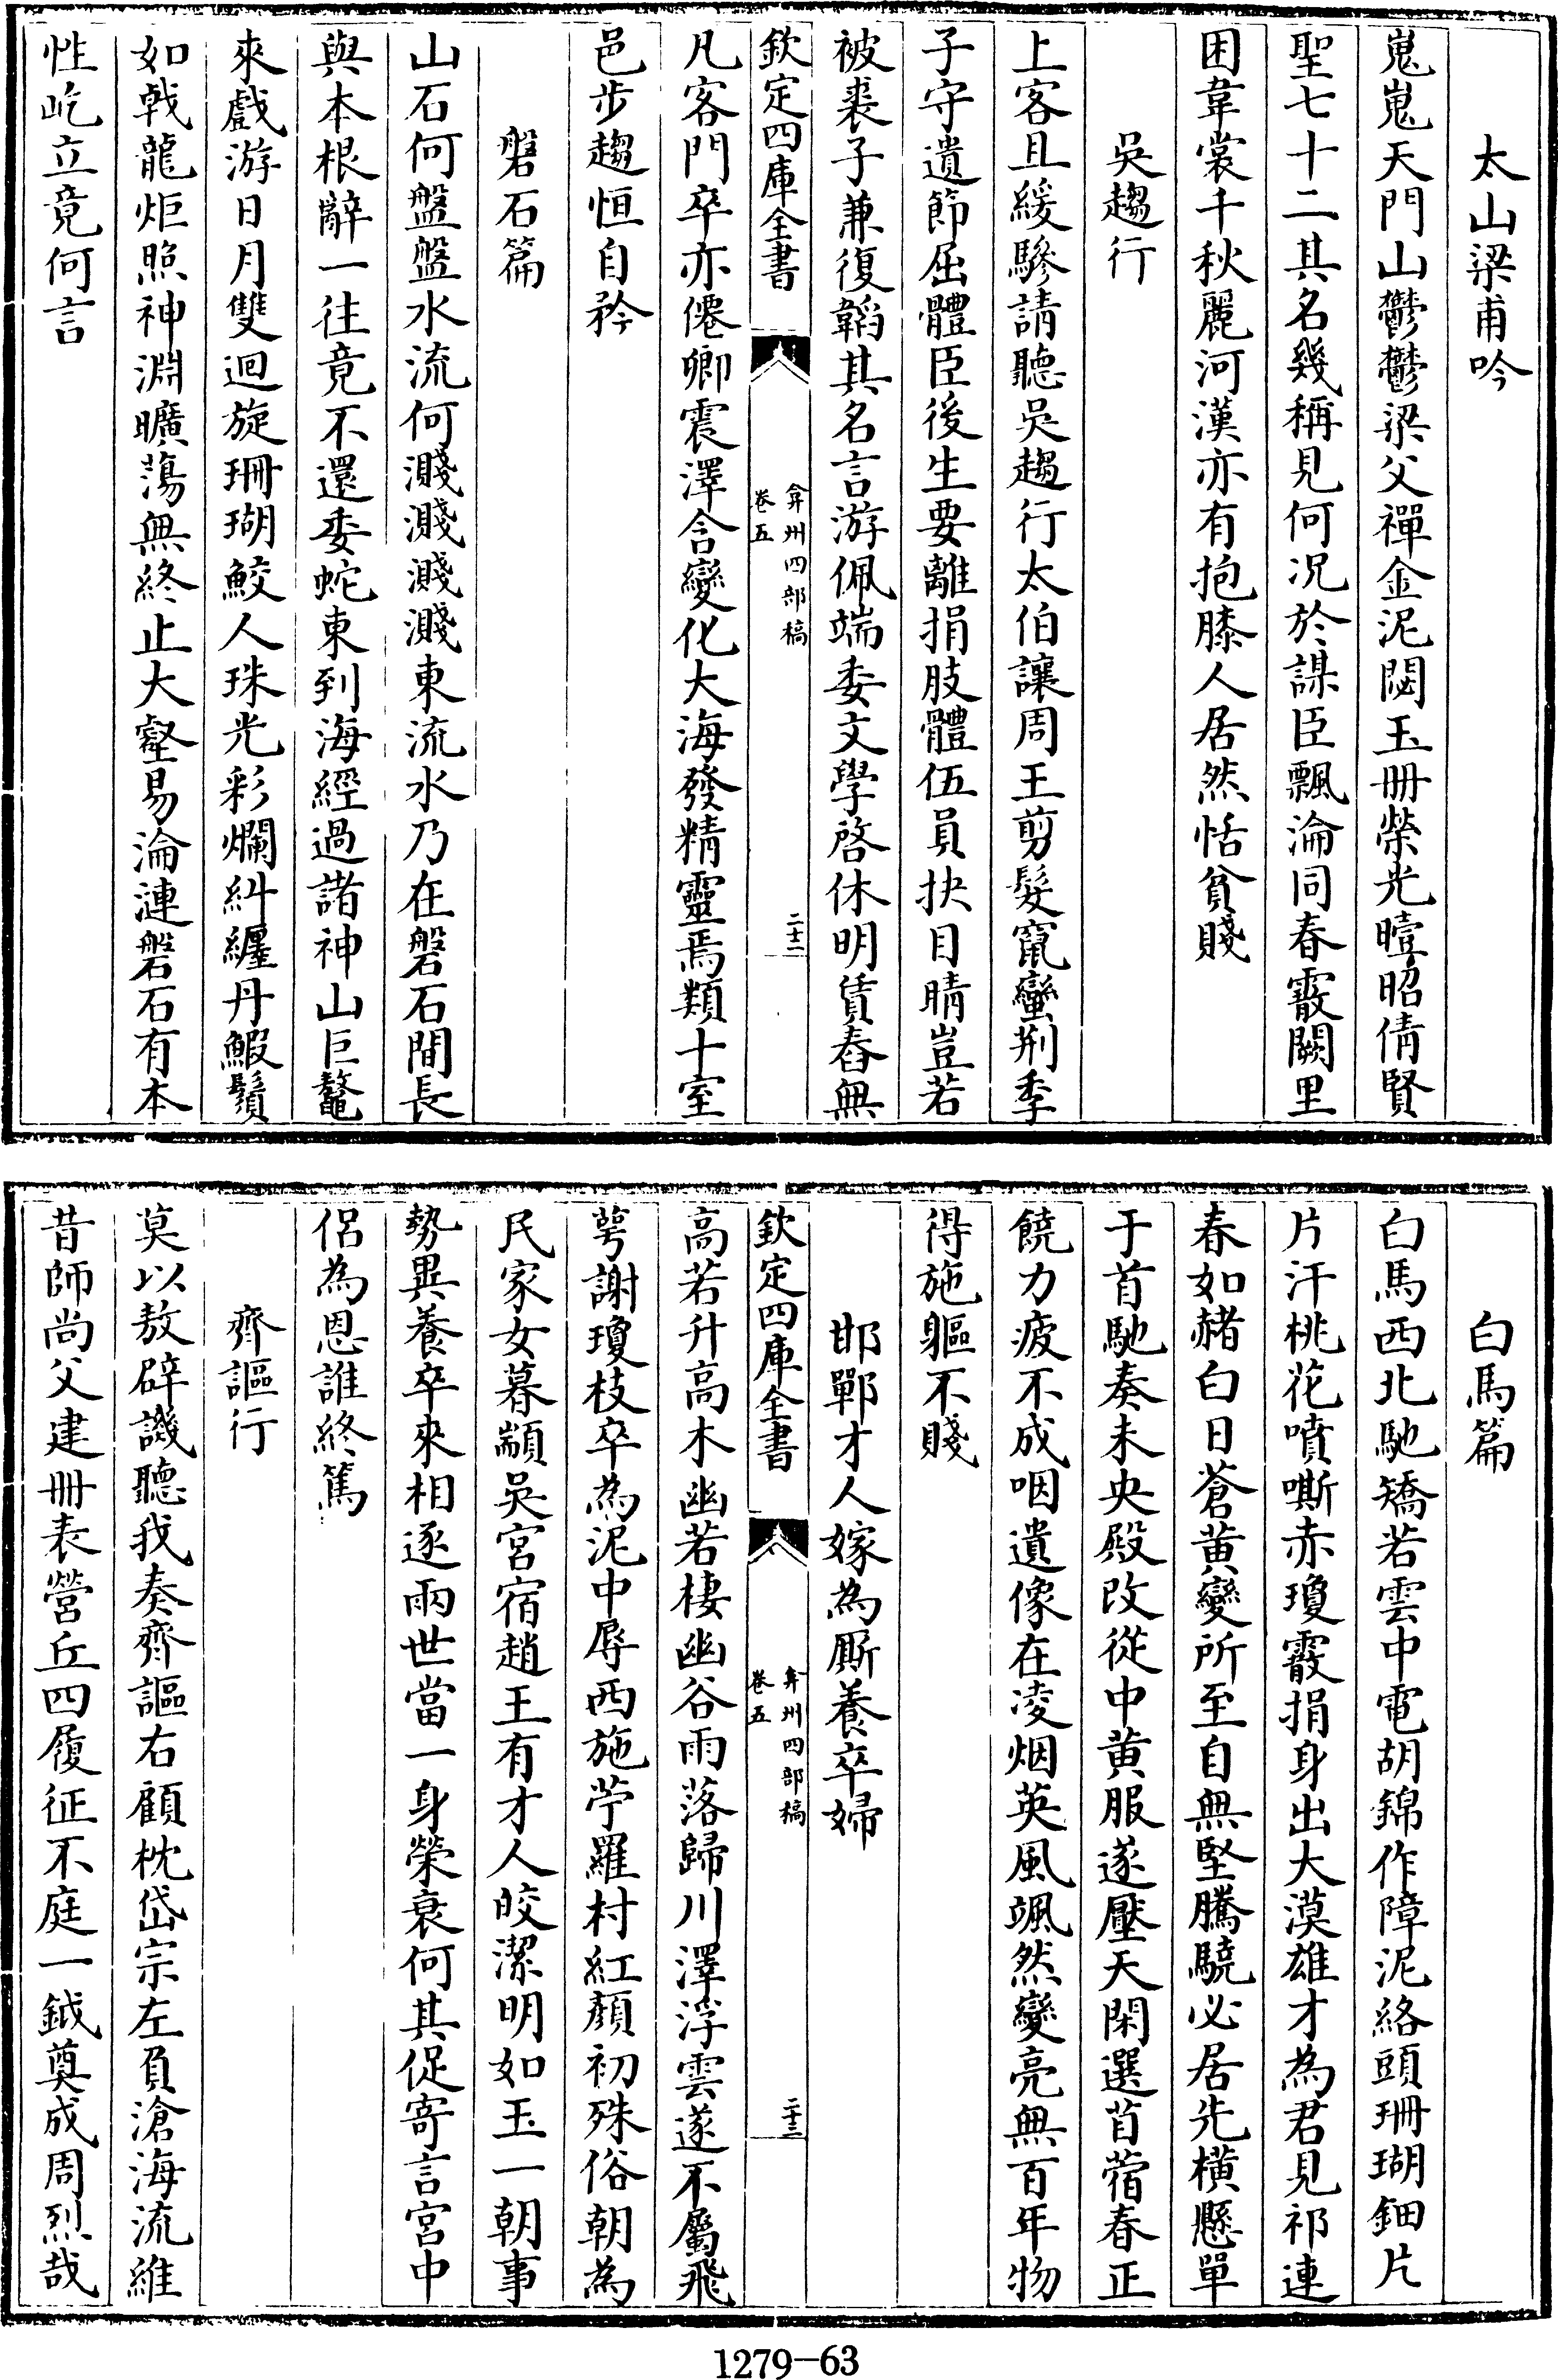 太山梁甫吟
嵬嵬天門山鬱鬱梁父禪金泥閟玉冊榮光曀昭倩賢
聖七十二其名幾稱見何况於謀臣飄淪同春霰闕里
困韋裳千秋麗河漢亦有抱膝人居然恬貧賤
吳趨行
上客且緩驂請聽吳趨行太伯讓周王剪髮竄蠻荆季
子守遺節屈體臣後生要離捐肢體伍員抉目睛豈若
被裘子兼復韜其名言游佩端委文學啓休明賃舂無
欽定四庫全書
弇州四部稿
卷五
二十二
凡客門卒亦僊卿震澤含變化大海發精靈焉類十室
邑步趨恒自矜
磐石篇
山石何盤盤水流何濺濺濺濺東流水乃在磐石間長
與本根辭一往竟不還委蛇東到海經過諸神山巨鼇
來戲游日月雙迴旋珊瑚鮫人珠光彩爛糾纏丹鰕鬚
如戟龍炬照神淵曠蕩無終止大壑易淪漣磐石有本
性屹立竟何言
白馬篇
白馬西北馳矯若雲中電胡錦作障泥絡頭珊瑚鈿片
片汗桃花噴嘶赤瓊霰捐身出大漠雄才為君見祁連
春如赭白日蒼黄變所至自無堅騰驍必居先橫懸單
于首馳奏未央殿改從中黄服遂壓天閑選苜蓿春正
饒力疲不成咽遺像在凌烟英風颯然變亮無百年物
得施軀不賤
邯鄲才人嫁為厮養卒婦
欽定四庫全書
弇州四部稿
卷五
二十三
高若升高木幽若棲幽谷雨落歸川澤浮雲遂不屬飛
萼謝瓊枝卒為泥中辱西施苧羅村紅顏初殊俗朝為
民家女暮顓吳宮宿趙王有才人皎潔明如玉一朝事
勢異養卒來相逐兩世當一身榮衰何其促寄言宮中
侶為恩誰終篤
齊謳行
莫以敖辟譏聽我奏齊謳右顧枕岱宗左負滄海流維
昔師尚父建冊表營丘四履征不庭一鉞奠成周烈哉
1279-63